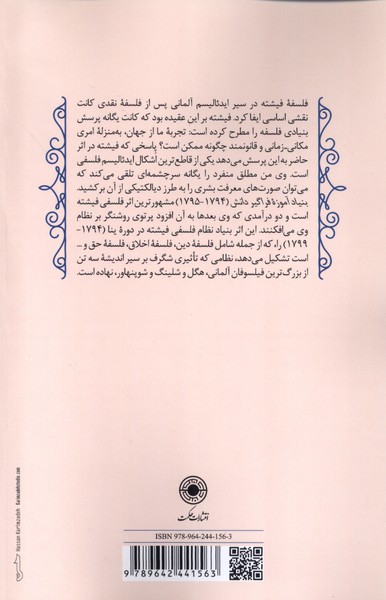 فلسفهٔ فیشته در سیر ایدئالیسم آلمانی پس از فلسفهٔ نقدی کانت
نقشی اساسی ایفا کرد. فیشته بر این عقیده بود که کانت یگانه پرسش
بنیادی فلسفه را مطرح کرده است: تجربهٔ ما از جهان، به‌منزلهٔ امری
مکانی-زمانی و قانونمند چگونه ممکن است؟ پاسخی که فیشته در اثر
حاضر به این پرسش می‌دهد یکی از قاطع‌ترین اشکال ایدئالیسم فلسفی
است. وی من مطلق منفرد را یگانه سرچشمه‌ای تلقی می‌کند که
می‌توان صورت‌های معرفت بشری را به طرز دیالکتیکی از آن برکشید.
بنیاد آموزهٔ فراگیر دانش (۱۷۹۴-۱۷۹۵) مشهورترین اثر فلسفی فیشته
است و دو درآمدی که وی بعدها به آن افزود پرتوی روشنگر بر نظام
وی می‌افکنند. این اثر بنیاد نظام فلسفی فیشته در دورهٔ ینا (۱۷۹۴-
۱۷۹۹) را، که از جمله شامل فلسفهٔ دین، فلسفهٔ اخلاق، فلسفهٔ حق و ...
است تشکیل می‌دهد، نظامی که تأثیری شگرف بر سیر اندیشهٔ سه تن
از بزرگ‌ترین فیلسوفان آلمانی، هگل و شلینگ و شوپنهاور، نهاده است.
انتشارات حکمت
ISBN 978-964-244-156-3
9 789642 441563
Hassan Karimzadeh